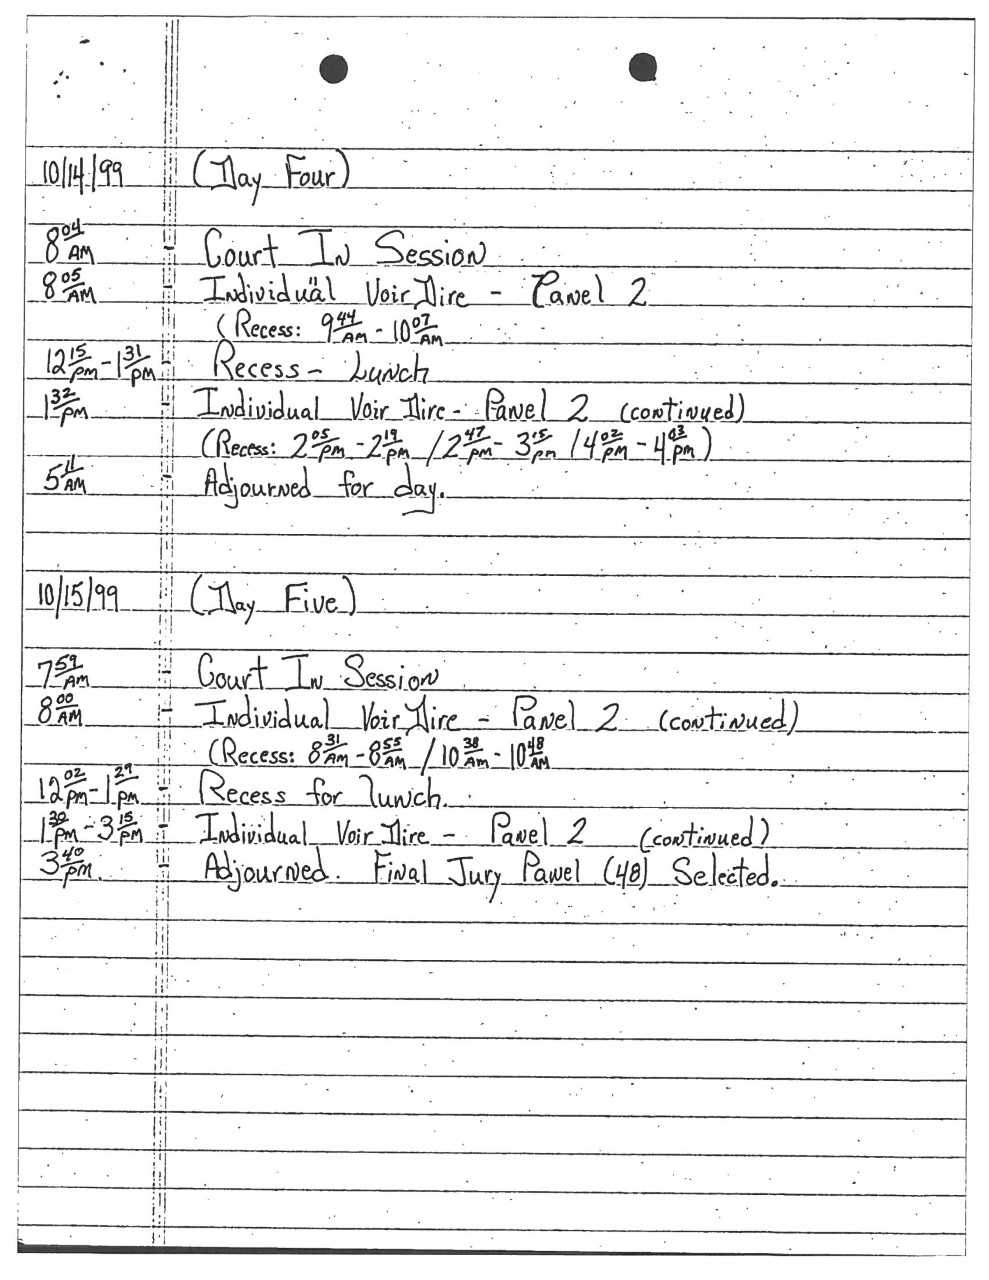 10/14/99 (Day Four)
8:04 AM - Court In Session
8:05 AM - Individual Voir Dire - Panel 2
(Recess: 9:44 AM - 10:07 AM
12:15 PM - 1:31 PM - Recess - Lunch
1:32 PM - Individual Voir Dire - Panel 2 (continued)
(Recess: 2:05 PM - 2:19 PM / 2:47 PM - 3:15 PM / 4:02 PM - PM)
5:11 AM - Adjourned for day.
10/15/99 (Day Five)
7:59 AM - Court In Session
8:00 AM - Individual Voir Dire - Panel 2 (continued)
(Recess: 8:31 AM - 8:55 AM / 10:38 AM - 10:48 AM
12:02 PM - 1:29 PM - Recess for lunch.
1:30 PM - 3:15 PM - Individual Voir Dire - Panel 2 (continued)
3:40 PM. - Adjourned. Final Jury Panel (48) Selected.